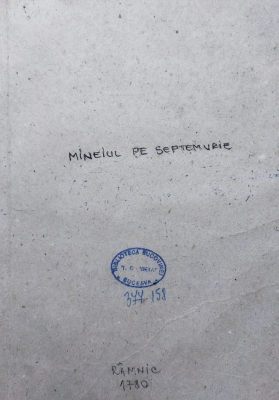 MINEIUL PE SEPTEMVRIE
BIBLIOTECA BUCOVINEI
SUCEAVA
377.158
RÂMNIC
1780